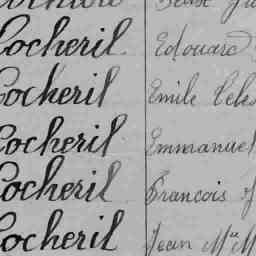 Cocheril Edouard
Cocheril Emile Celes
Cocheril Emmanuel
Cocheril Francois
Cocheril Jean M